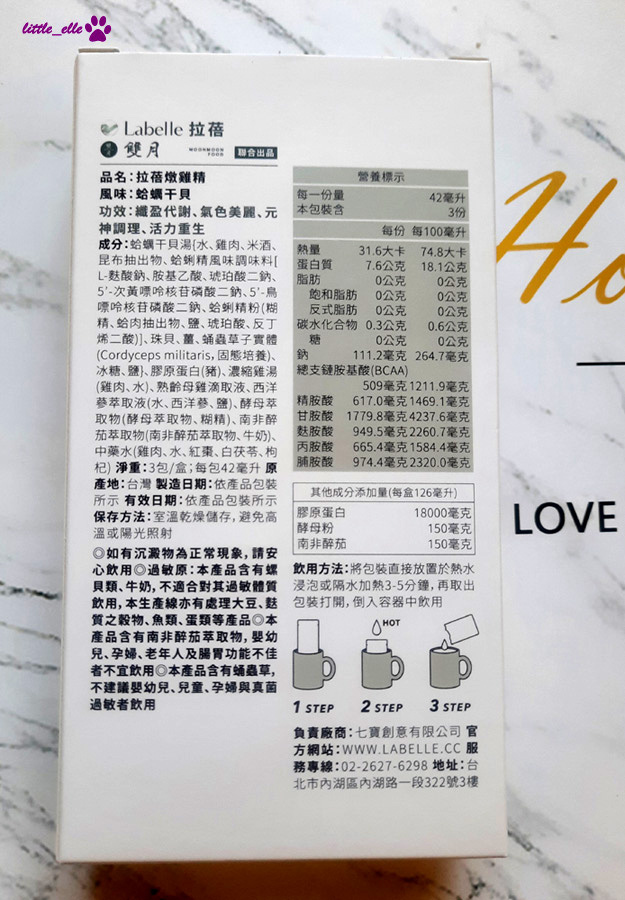 little_elle
Labelle 拉蓓
雙月 MOONMOON FOOD 聯合出品
品名:拉蓓燉雞精
風味:蛤蠣干貝
功效:纖盈代謝、氣色美麗、元
神調理、活力重生
成分:蛤蠣干貝湯[水、雞肉、米酒、
昆布抽出物、蛤蜊精風味調味料[
L-麩酸鈉、胺基乙酸、琥珀酸二鈉、
5'-次黃嘌呤核苷磷酸二鈉、5'-鳥
嘌呤核苷磷酸二鈉、蛤蜊精粉(糊
精、蛤肉抽出物、鹽、琥珀酸、反丁
烯二酸)]、珠貝、薑、蛹蟲草子實體
(Cordyceps militaris,固態培養)、
冰糖、鹽}、膠原蛋白(豬)、濃縮雞湯
(雞肉、水)、熟齡母雞滴取液、西洋
蔘萃取液(水、西洋蔘、鹽)、酵母萃
取物(酵母萃取物、糊精)、南非醉
茄萃取物(南非醉茄萃取物、牛奶)、
中藥水(雞肉、水、紅棗、白茯苓、枸
杞) 淨重:3包/盒;每包42毫升 原
產地:台灣 製造日期:依產品包裝
所示 有效日期:依產品包裝所示
保存方法:室溫乾燥儲存,避免高
溫或陽光照射
◎如有沉澱物為正常現象,請安
心飲用◎過敏原:本產品含有螺
貝類、牛奶,不適合對其過敏體質
飲用,本生產線亦有處理大豆、麩
質之穀物、魚類、蛋類等產品◎本
產品含有南非醉茄萃取物,嬰幼
兒、孕婦、老年人及腸胃功能不佳
者不宜飲用◎本產品含有蛹蟲草,
不建議嬰幼兒、兒童、孕婦與真菌
過敏者飲用
營養標示
每一份量 42毫升
本包裝含 3份
每份 每100毫升
熱量 31.6大卡 74.8大卡
蛋白質 7.6公克 18.1公克
脂肪 0公克 0公克
飽和脂肪 0公克 0公克
反式脂肪 0公克 0公克
碳水化合物 0.3公克 0.6公克
糖 0公克 0公克
鈉 111.2毫克 264.7毫克
總支鏈胺基酸(BCAA)
509毫克 1211.9毫克
精胺酸 617.0毫克 1469.1毫克
甘胺酸 1779.8毫克 4237.6毫克
麩胺酸 949.5毫克 2260.7毫克
丙胺酸 665.4毫克 1584.4毫克
脯胺酸 974.4毫克 2320.0毫克
其他成分添加量(每盒126毫升)
膠原蛋白 18000毫克
酵母粉 150毫克
南非醉茄 150毫克
飲用方法:將包裝直接放置於熱水
浸泡或隔水加熱3-5分鐘,再取出
包裝打開,倒入容器中飲用
HOT
1 STEP 2 STEP 3 STEP
負責廠商:七寶創意有限公司 官
方網站:WWW.LABELLE.CC 服
務專線:02-2627-6298 地址:台
北市內湖區內湖路一段322號3樓
Ho
LOVE